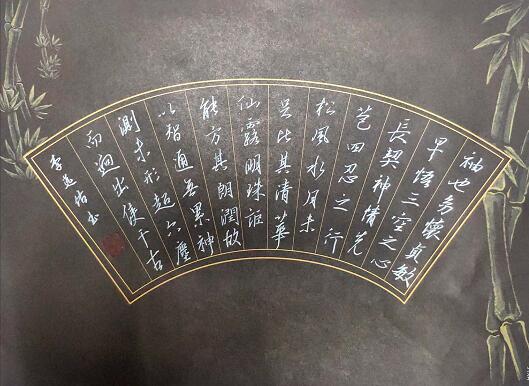 袖也幼懷貞敏
早悟三空之心
長契神情先
苞四忍之行
松風水月未
足比其清華
仙露明珠詎
能方其朗潤故
以智通無累神
測未形超六塵
而迥出使千古
李書